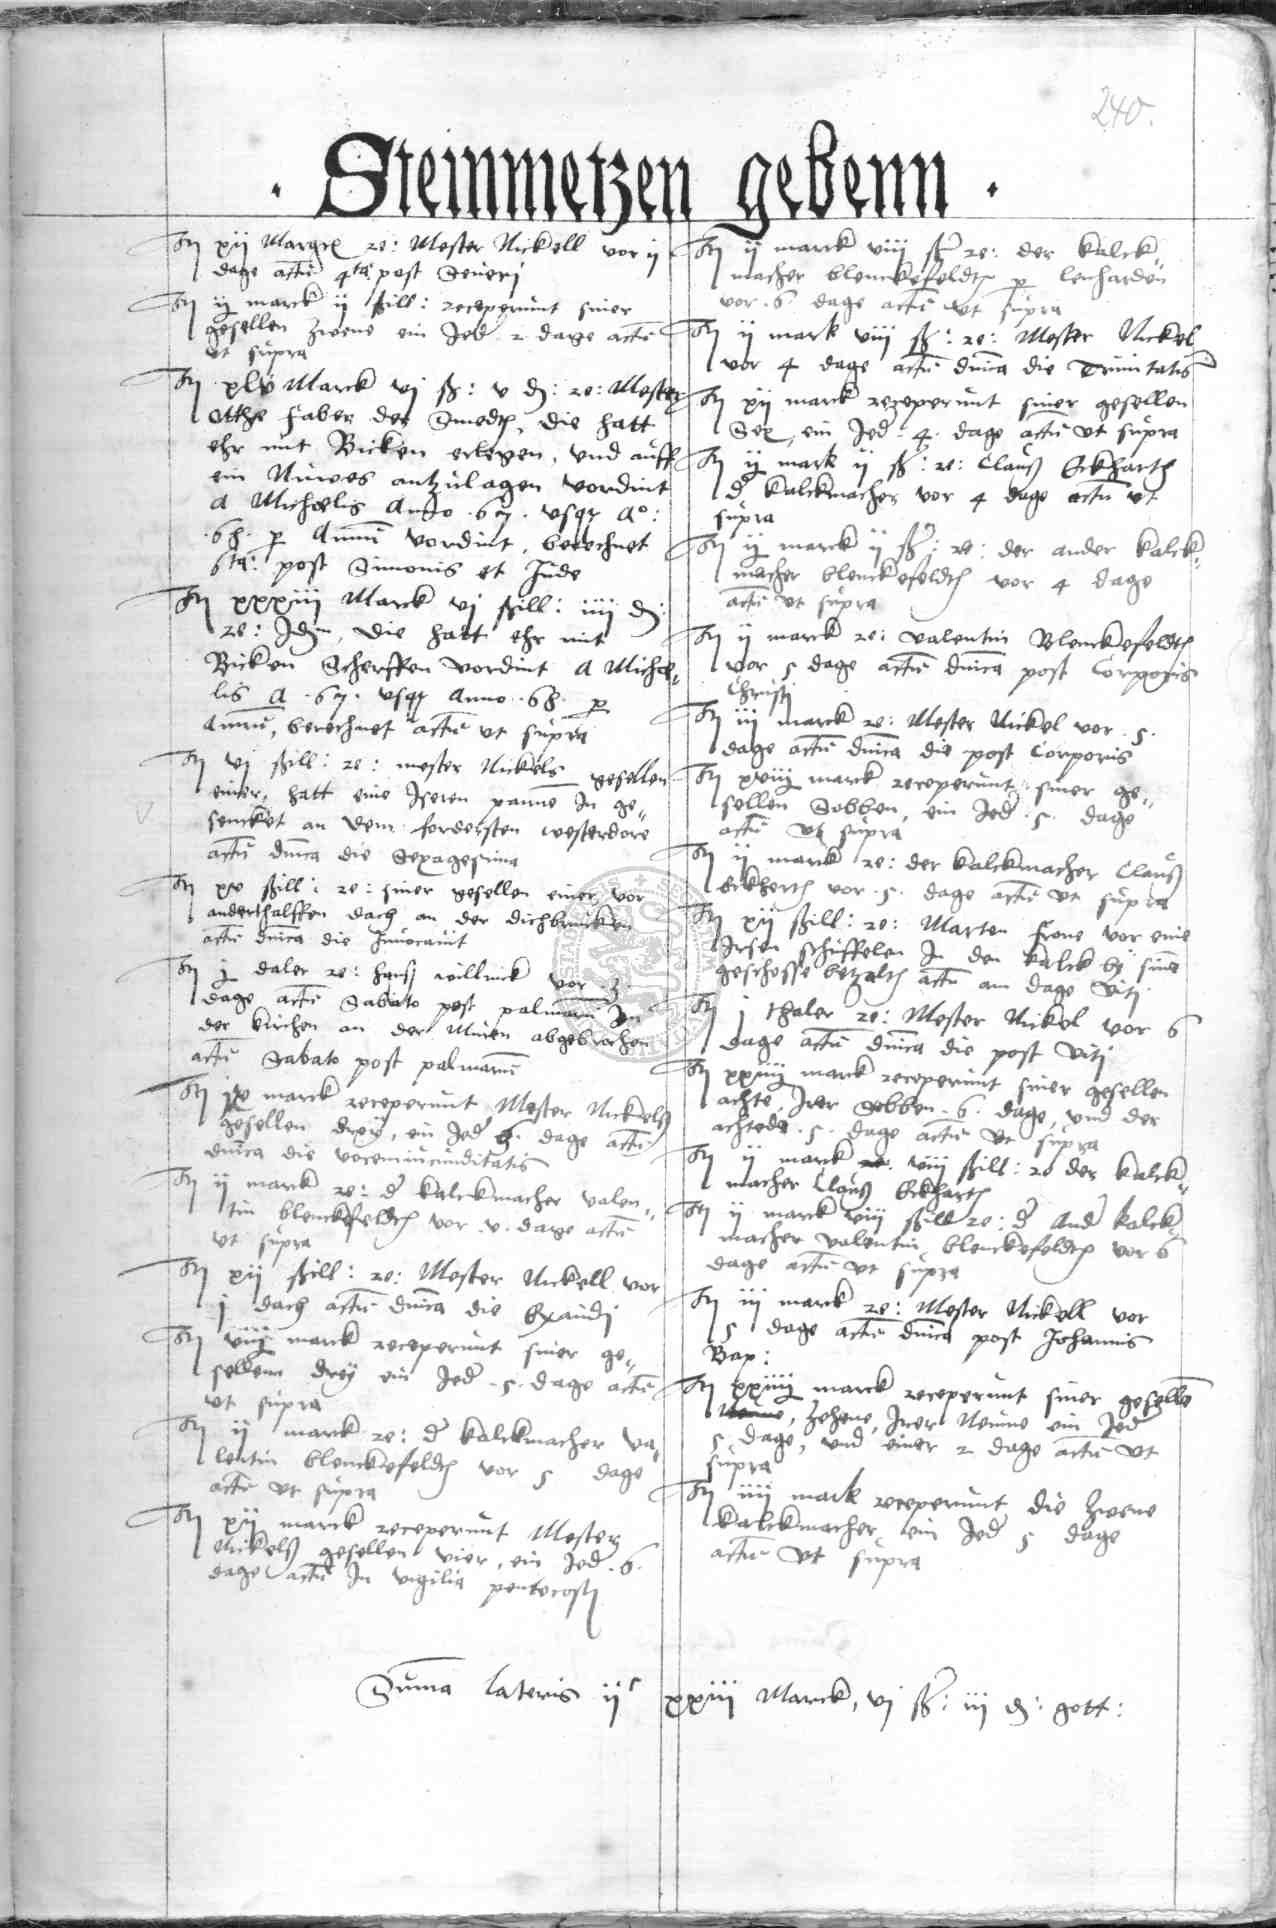 240.
Steinmetzen gebenn
It xij Marck re: Mester Nickell vor ij
dage actū 4ta post Seueri
It ij marck ij ßill: receperunt siner
gesellen zwene ein Jed. 2 dage actū
vt supra
It xlv Marck vj ß: v d: re: Mester
Otthe faber der Smedt, die hatt
ehr mit Bicken erlegen, vnd auff
ein Nuwes antzulagen vordint
A Michaelis Anno .67. vsq; Ao:
.68. p Annū vordint, berechnet
6ta: post Simonis et Jude
It xxxiii Marck vj ßill: iiii d:
re: Idem, die hatt ehr mit
Bicken Scherffen vordint A Michae„
lis A .67. vsq; Anno .68. p
Annū, berechnet actū vt supra
It vi ßill: re: mester Nickels gesellen
einer, hatt eine Iseren panne In ge„
sencket an dem fordersten westerdore
actū dnica die Sexagesima
It xv ßill: re: siner gesellen einer vor
anderthalffen dach an der dichbrucken
actū dnica die Inuocauit
It j daler re: Hans willnick vor 3
dage actū Sabato post palmarū In
der kirchen an der Muren abgebrochen
actū Sabato post palmarū
It ix marck receperunt Mester Nickelß
gesellen drey, ein Jed 6. dage actū
dnica die vocem iucunditatis
It ij marck re: d kalckmacher valen„
tin blenckefeldt vor v. dage actū
vt supra
It xij ßill: re: Mester Nickell vor
j dach actū dnica die Exaudi
It viij marck receperunt siner ge„
sellenn drey ein Jed .5. dage actū
vt supra
It ij marck re: d kalckmacher va„
lentin blenckefeldt vor 5 dage
actū vt supra
It xij marck receperunt Mester
Nickelß gesellen vier, ein Jed .6.
dage actū In vigilia pentecosti
It ij marck viij ß re: der kalck„
macher blenckefeldt p lenharden
vor .6. dage actū vt supra
It ij mark viij ß: re: Mester Nickel
vor 4 dage actū dnica die Trinitatis
It xij marck receperunt siner gesellen
Sex, ein Jed. 4. dage actū vt supra
It ij mark ij ß: re: Claus Eckhart
d kalckmacher vor 4 dage actū vt
supra
It ij marck ij ß: re: der ander kalck„
macher blenckefeldt vor 4 dage
actū vt supra
It ij marck re: valentin Blenckefeldt
vor 5 dage actū dnica post Corporis
Christi
It iij marck re: Mester Nickel vor .5.
dage actū dnica die post Corporis
It xviij marck receperunt siner ge„
sellen Sobben, ein Jed .5. dage
actū vt supra
It ij marck re: der kalckmacher Clauß
Eckhert vor .5. dage actū vt supra
It xij ßill: re: Marten frone vor eine
Irsen schuffelen In den kalck by sine
geschosse betzalt actū am dage Viti
It j thaler re: Mester Nickel vor 6
dage actū dnica die post Viti
It xxiiij marck receperunt siner gesellen
achte, Irer Sobben .6. dage, vnd der
achtede .5. dage actū vt supra
It ij marck viij ßill: re der kalck„
macher Clauß Eckhart
It ij marck viij ßill re: d And kalck„
macher valentin blenckefeldt vor 6
dage actū vt supra
It iij marck re: Mester Nickell vor
5 dage actū dnica post Johannis
Bap:
It xxiiij marck receperunt siner gesellē
zehene, Irer Neune ein Jed
5 dage, vnd einer 2 dage actū vt
supra
It iiij mark receperunt die zwene
kalckmacher ein Jed 5 dage
actū vt supra
Suma lateris ijc xxiii Marck, vj ß: iij d: gott: